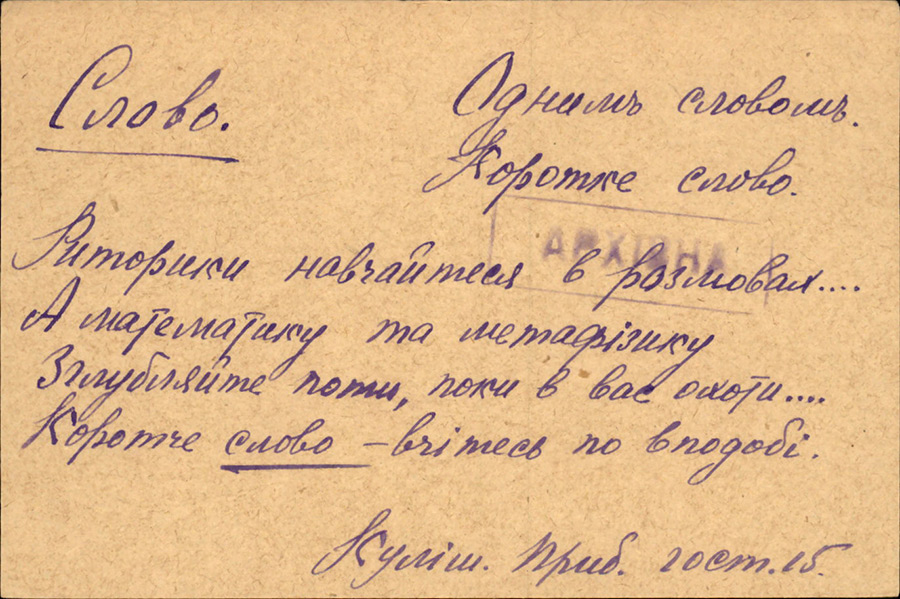 Слово.
Однимъ словомъ.
Коротке слово.
АРХІВНА
Риторики навчайтеся в розмовах....
А математику та метафізику
Зглубляйте поти, поки в вас охоти....
Коротче слово – вчітесь по вподобі.
Куліш. Приб. гост. 15.